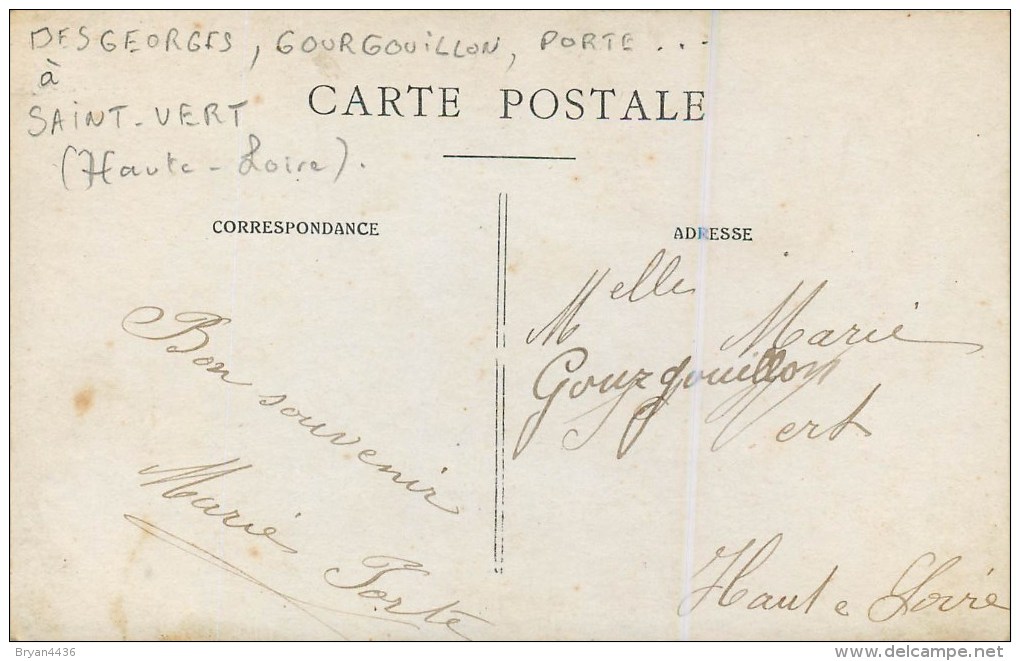 DESGEORGES, GOURGOUILLON, PORTE...
à
SAINT-VERT
(Haute-Loire).
CARTE POSTALE
CORRESPONDANCE
ADRESSE
Bon souvenir
Marie Porte
Melle Marie
Gourgouillon
Vert
Haute Loire
Bryan4436
www.delcampe.net